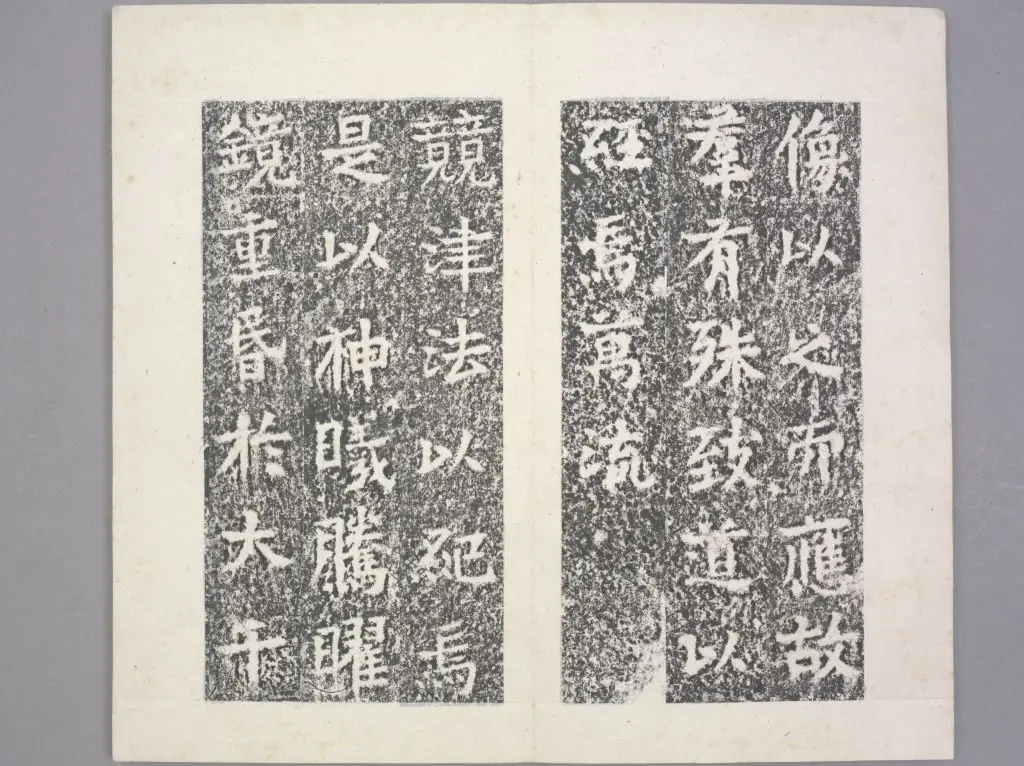 像以之而應故
羣有殊致道以
經焉萬流
競津法以紀焉
是以神曦騰曜
鏡重昏於大千